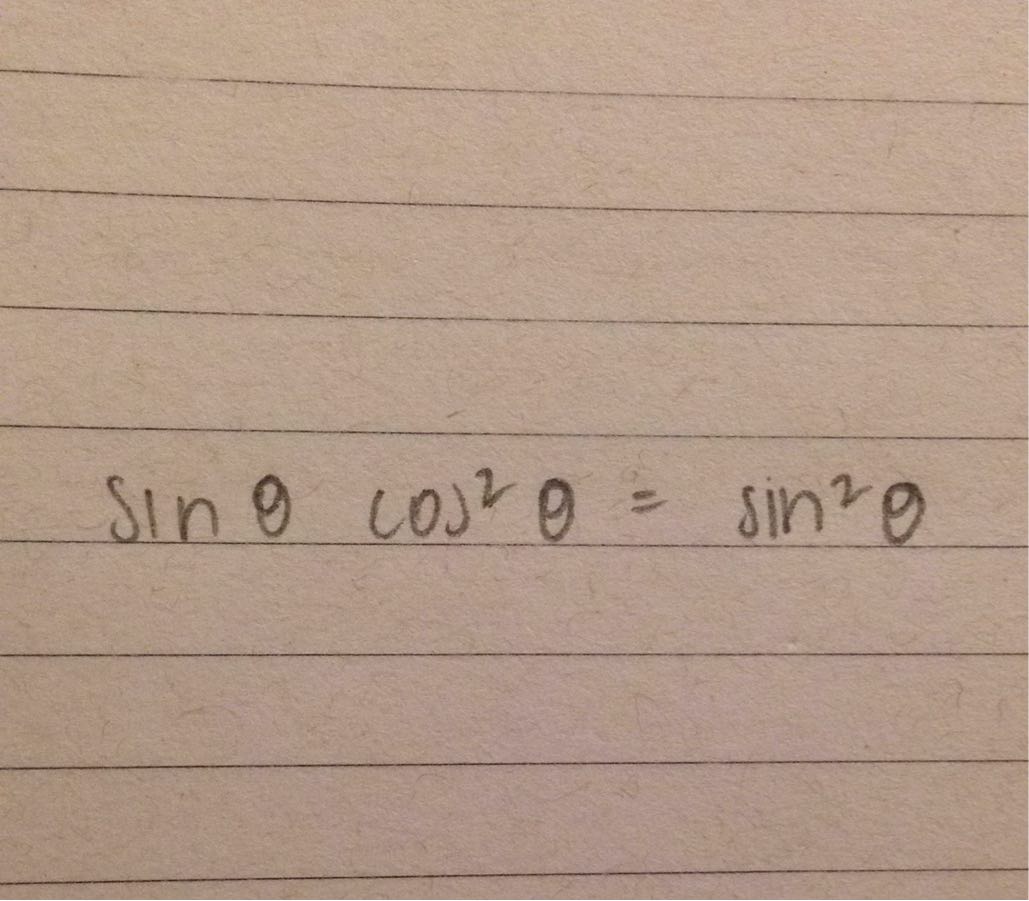 sin θ cos² θ = sin² θ